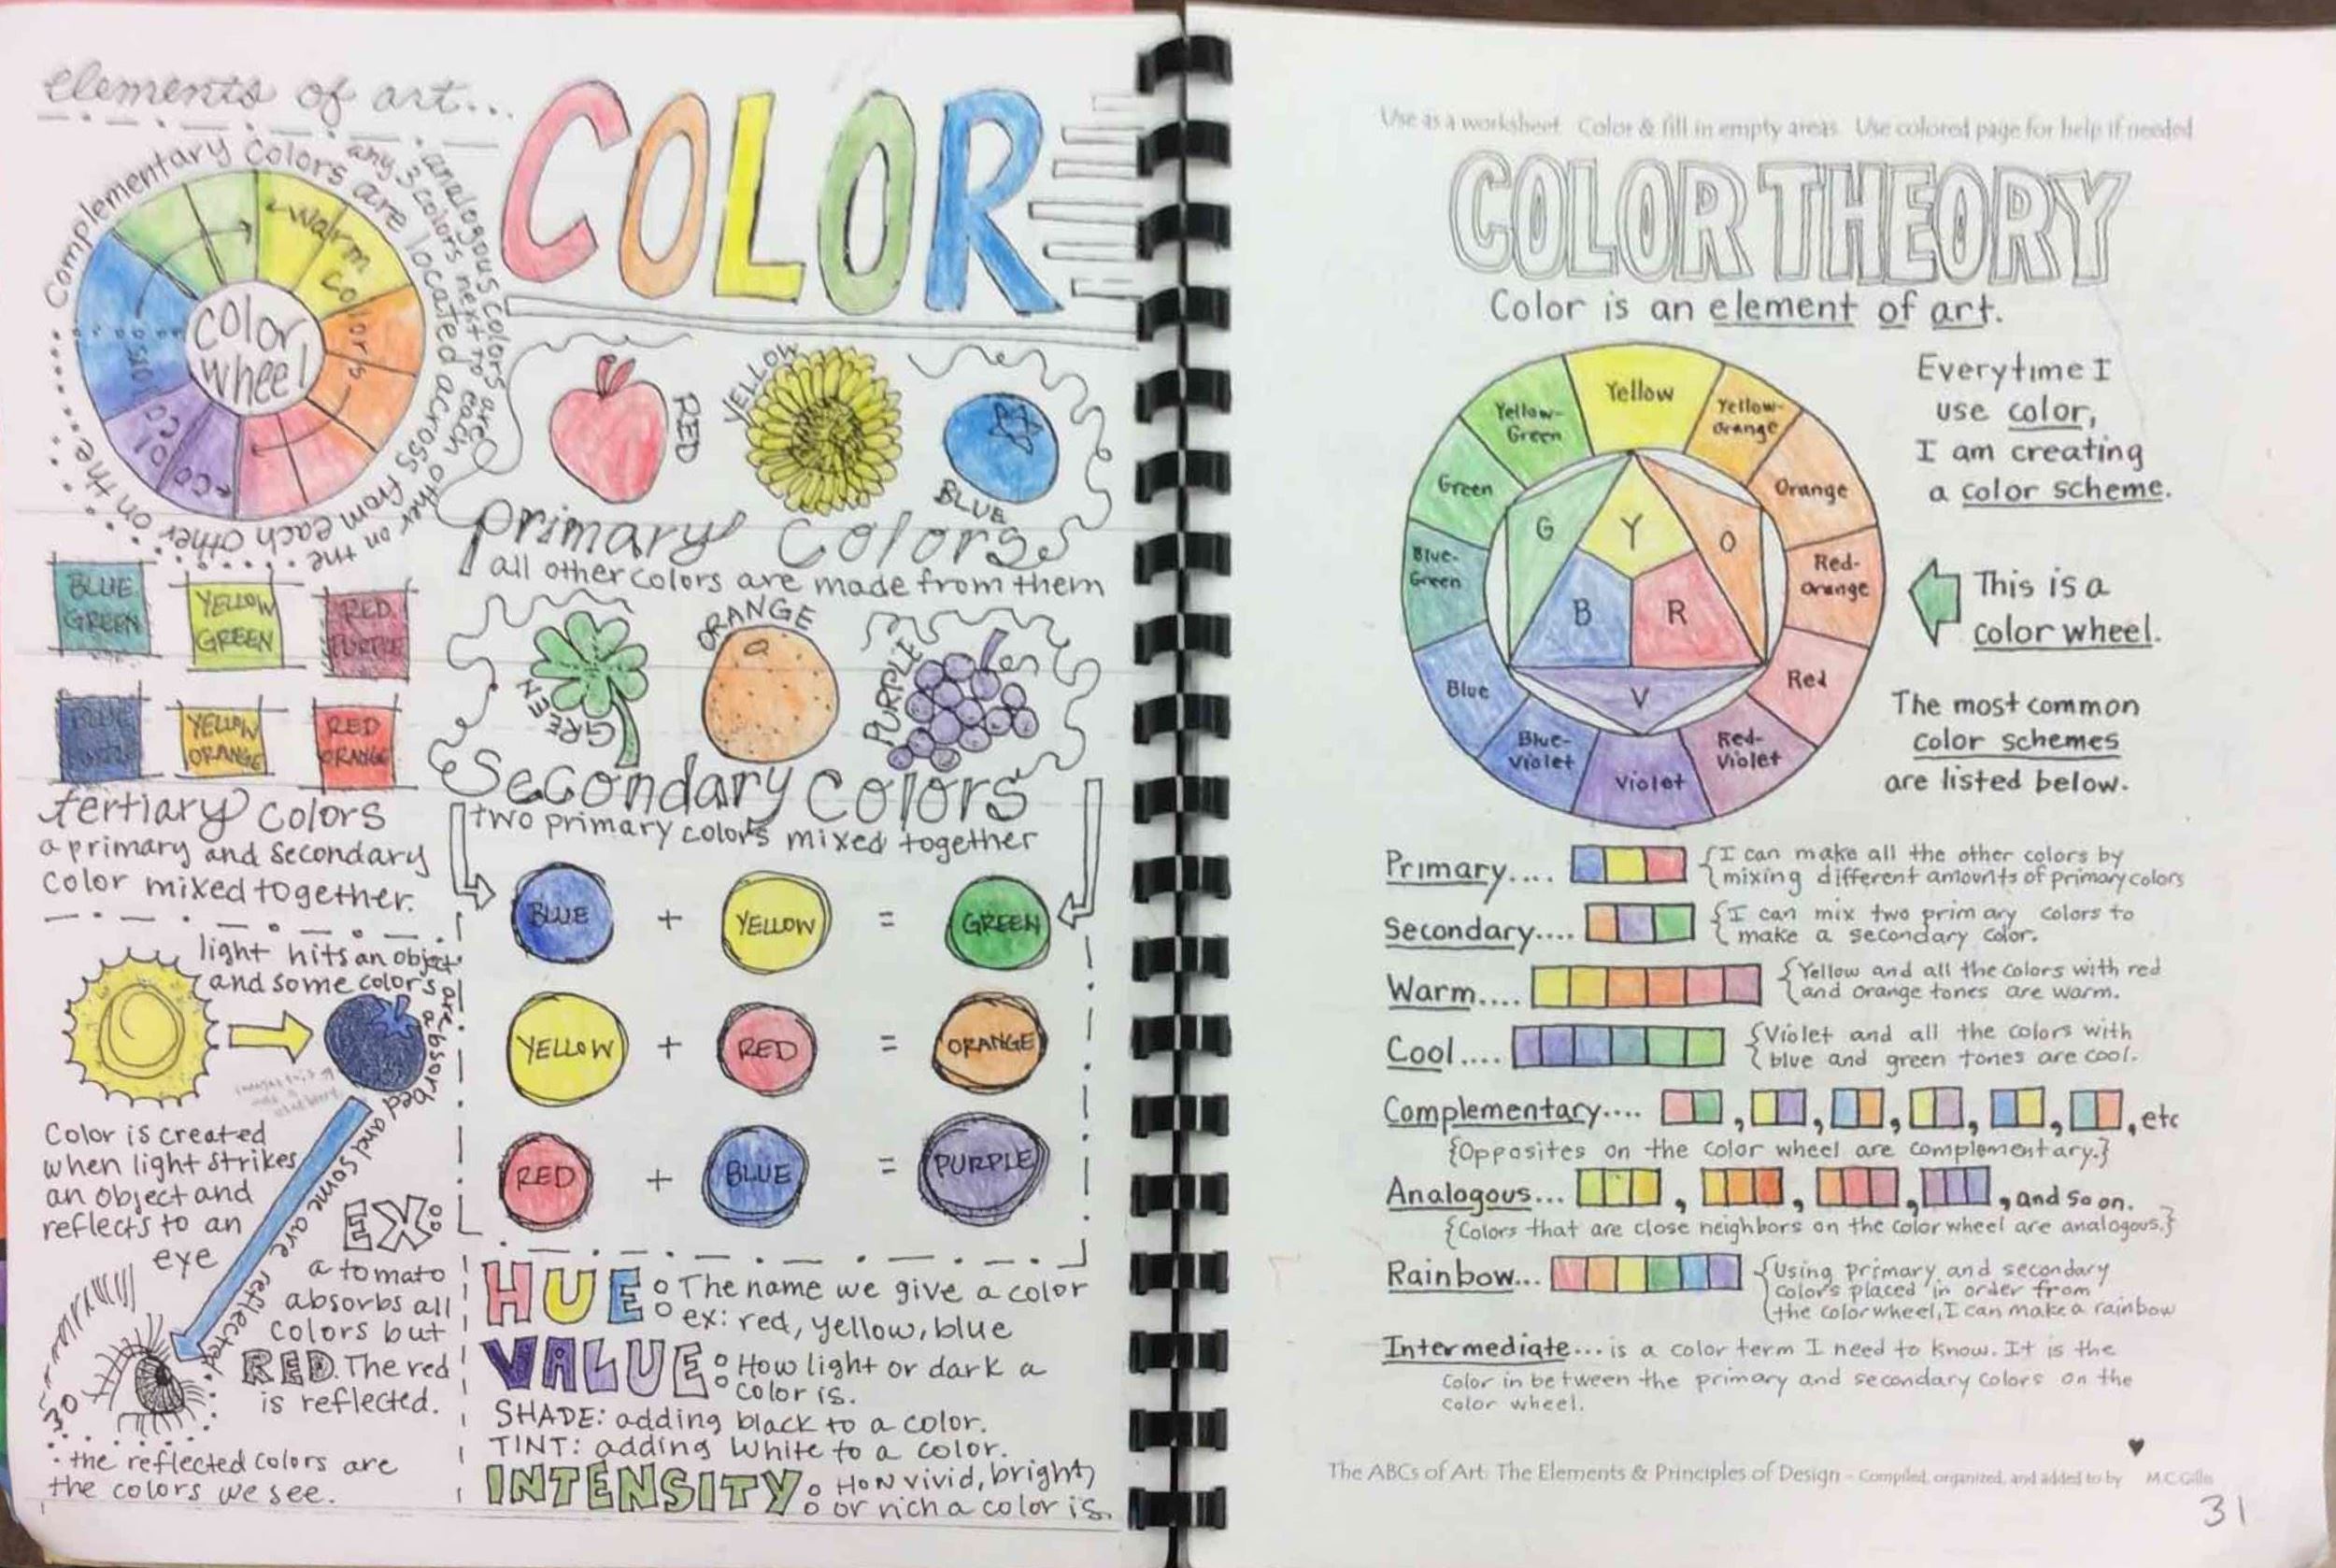 elements of art...
COLOR
Complementary Colors are located across from each other on the
analogous colors are
any 3 colors next to each other on the
warm colors
cool colors
color
wheel
RED
YELLOW
BLUE
primary colors
all other colors are made from them
BLUE
GREEN
YELLOW
GREEN
RED
PURPLE
BLUE
YELLOW
ORANGE
RED
ORANGE
tertiary colors
a primary and secondary
color mixed together.
GREEN
ORANGE
PURPLE
Secondary Colors
two primary colors mixed together
BLUE + YELLOW = GREEN
YELLOW + RED = ORANGE
RED + BLUE = PURPLE
light hits an object
and some colors are absorbed and some are reflected
Color is created
when light strikes
an object and
reflects to an
eye
EX:
a tomato
absorbs all
colors but
RED. The red
is reflected.
so
the reflected colors are
the colors we see.
HUE: The name we give a color
ex: red, yellow, blue
VALUE: How light or dark a
color is.
SHADE: adding black to a color.
TINT: adding white to a color.
INTENSITY: How vivid, bright,
or rich a color is.
Use as a worksheet. Color & fill in empty areas. Use colored page for help if needed
COLOR THEORY
Color is an element of art.
Yellow
Yellow-
Orange
Orange
Red-
Orange
Red
Red-
Violet
Violet
Blue-
Violet
Blue
Blue-
Green
Green
Yellow-
Green
Y
O
R
V
B
G
Everytime I
use color,
I am creating
a color scheme.
This is a
color wheel.
The most common
color schemes
are listed below.
Primary.... {I can make all the other colors by
mixing different amounts of primary colors
Secondary.... {I can mix two primary colors to
make a secondary color.
Warm.... {Yellow and all the colors with red
and orange tones are warm.
Cool.... {Violet and all the colors with
blue and green tones are cool.
Complementary.... , , , , , , etc
{Opposites on the color wheel are complementary.}
Analogous... , , , , and so on.
{Colors that are close neighbors on the color wheel are analogous.}
Rainbow... {Using primary and secondary
colors placed in order from
the color wheel, I can make a rainbow
Intermediate... is a color term I need to know. It is the
color in between the primary and secondary colors on the
color wheel.
The ABCs of Art: The Elements & Principles of Design - Compiled, organized, and added to by M.C.Gillis
31